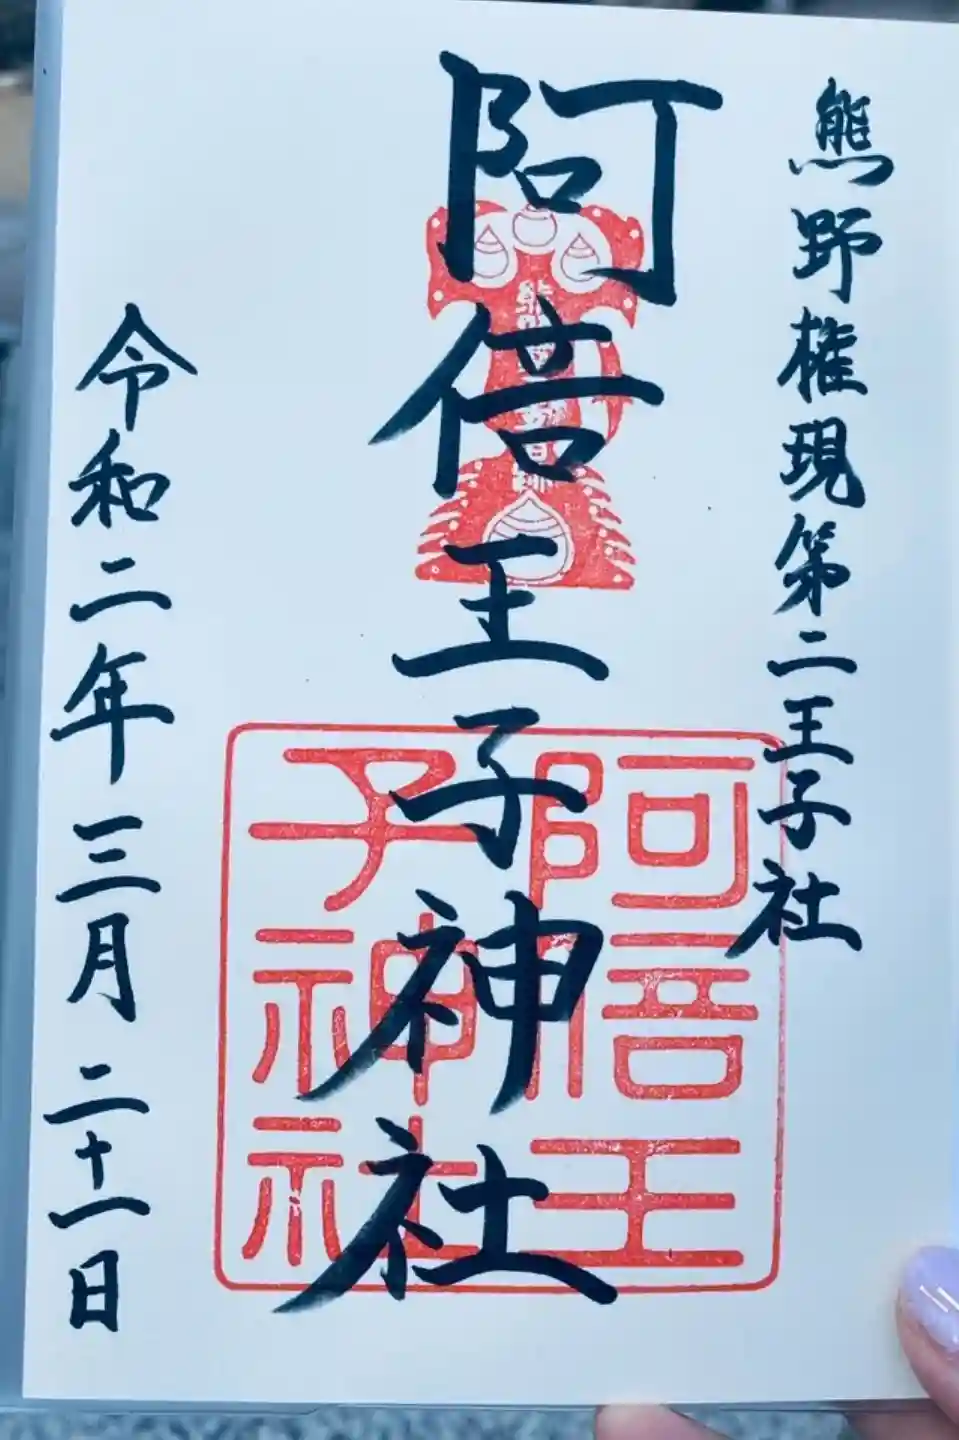 熊野権現第二王子社
阿倍王子神社
令和二年三月二十一日
阿倍王
子神社